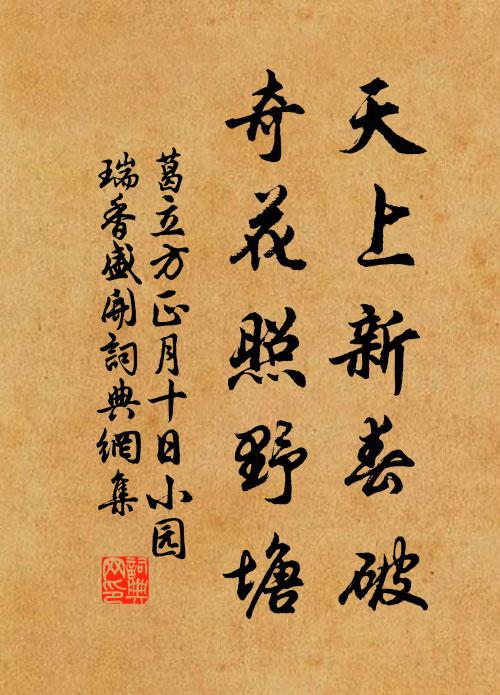 天上新春破
奇花照野塘
葛立方正月十日小园
瑞香盛開詞典網集
詞典网印